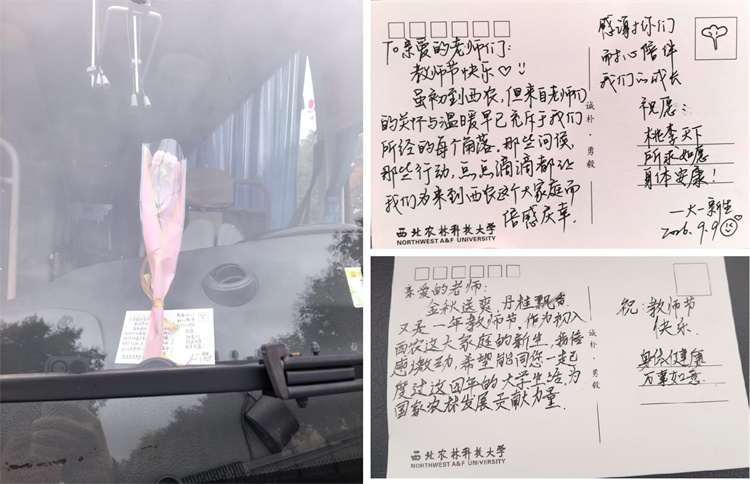 To亲爱的老师们:
教师节快乐♡
虽初到西农,但来自老师们
的关怀与温暖早已充斥于我们
所经的每个角落。那些问候,
那些行动,点点滴滴都让
我们为来到西农这个大家庭而
倍感庆幸.
感谢你们
耐心陪伴
我们的成长
祝愿:
桃李天下
所求如愿
身体安康!
一大一新生
9.9
诚朴·勇毅
西北农林科技大学
NORTHWEST A&F UNIVERSITY
亲爱的老师:
金秋送爽,丹桂飘香
又是一年教师节。作为初入
西农这大家庭的新生,我倍
感激动,希望能同您一起
度过这四年的大学生活,为
国家农林发展贡献力量.
祝:教师节
快乐
身体健康
万事如意
诚朴·勇毅
西北农林科技大学
NORTHWEST A&F UNIVERSITY